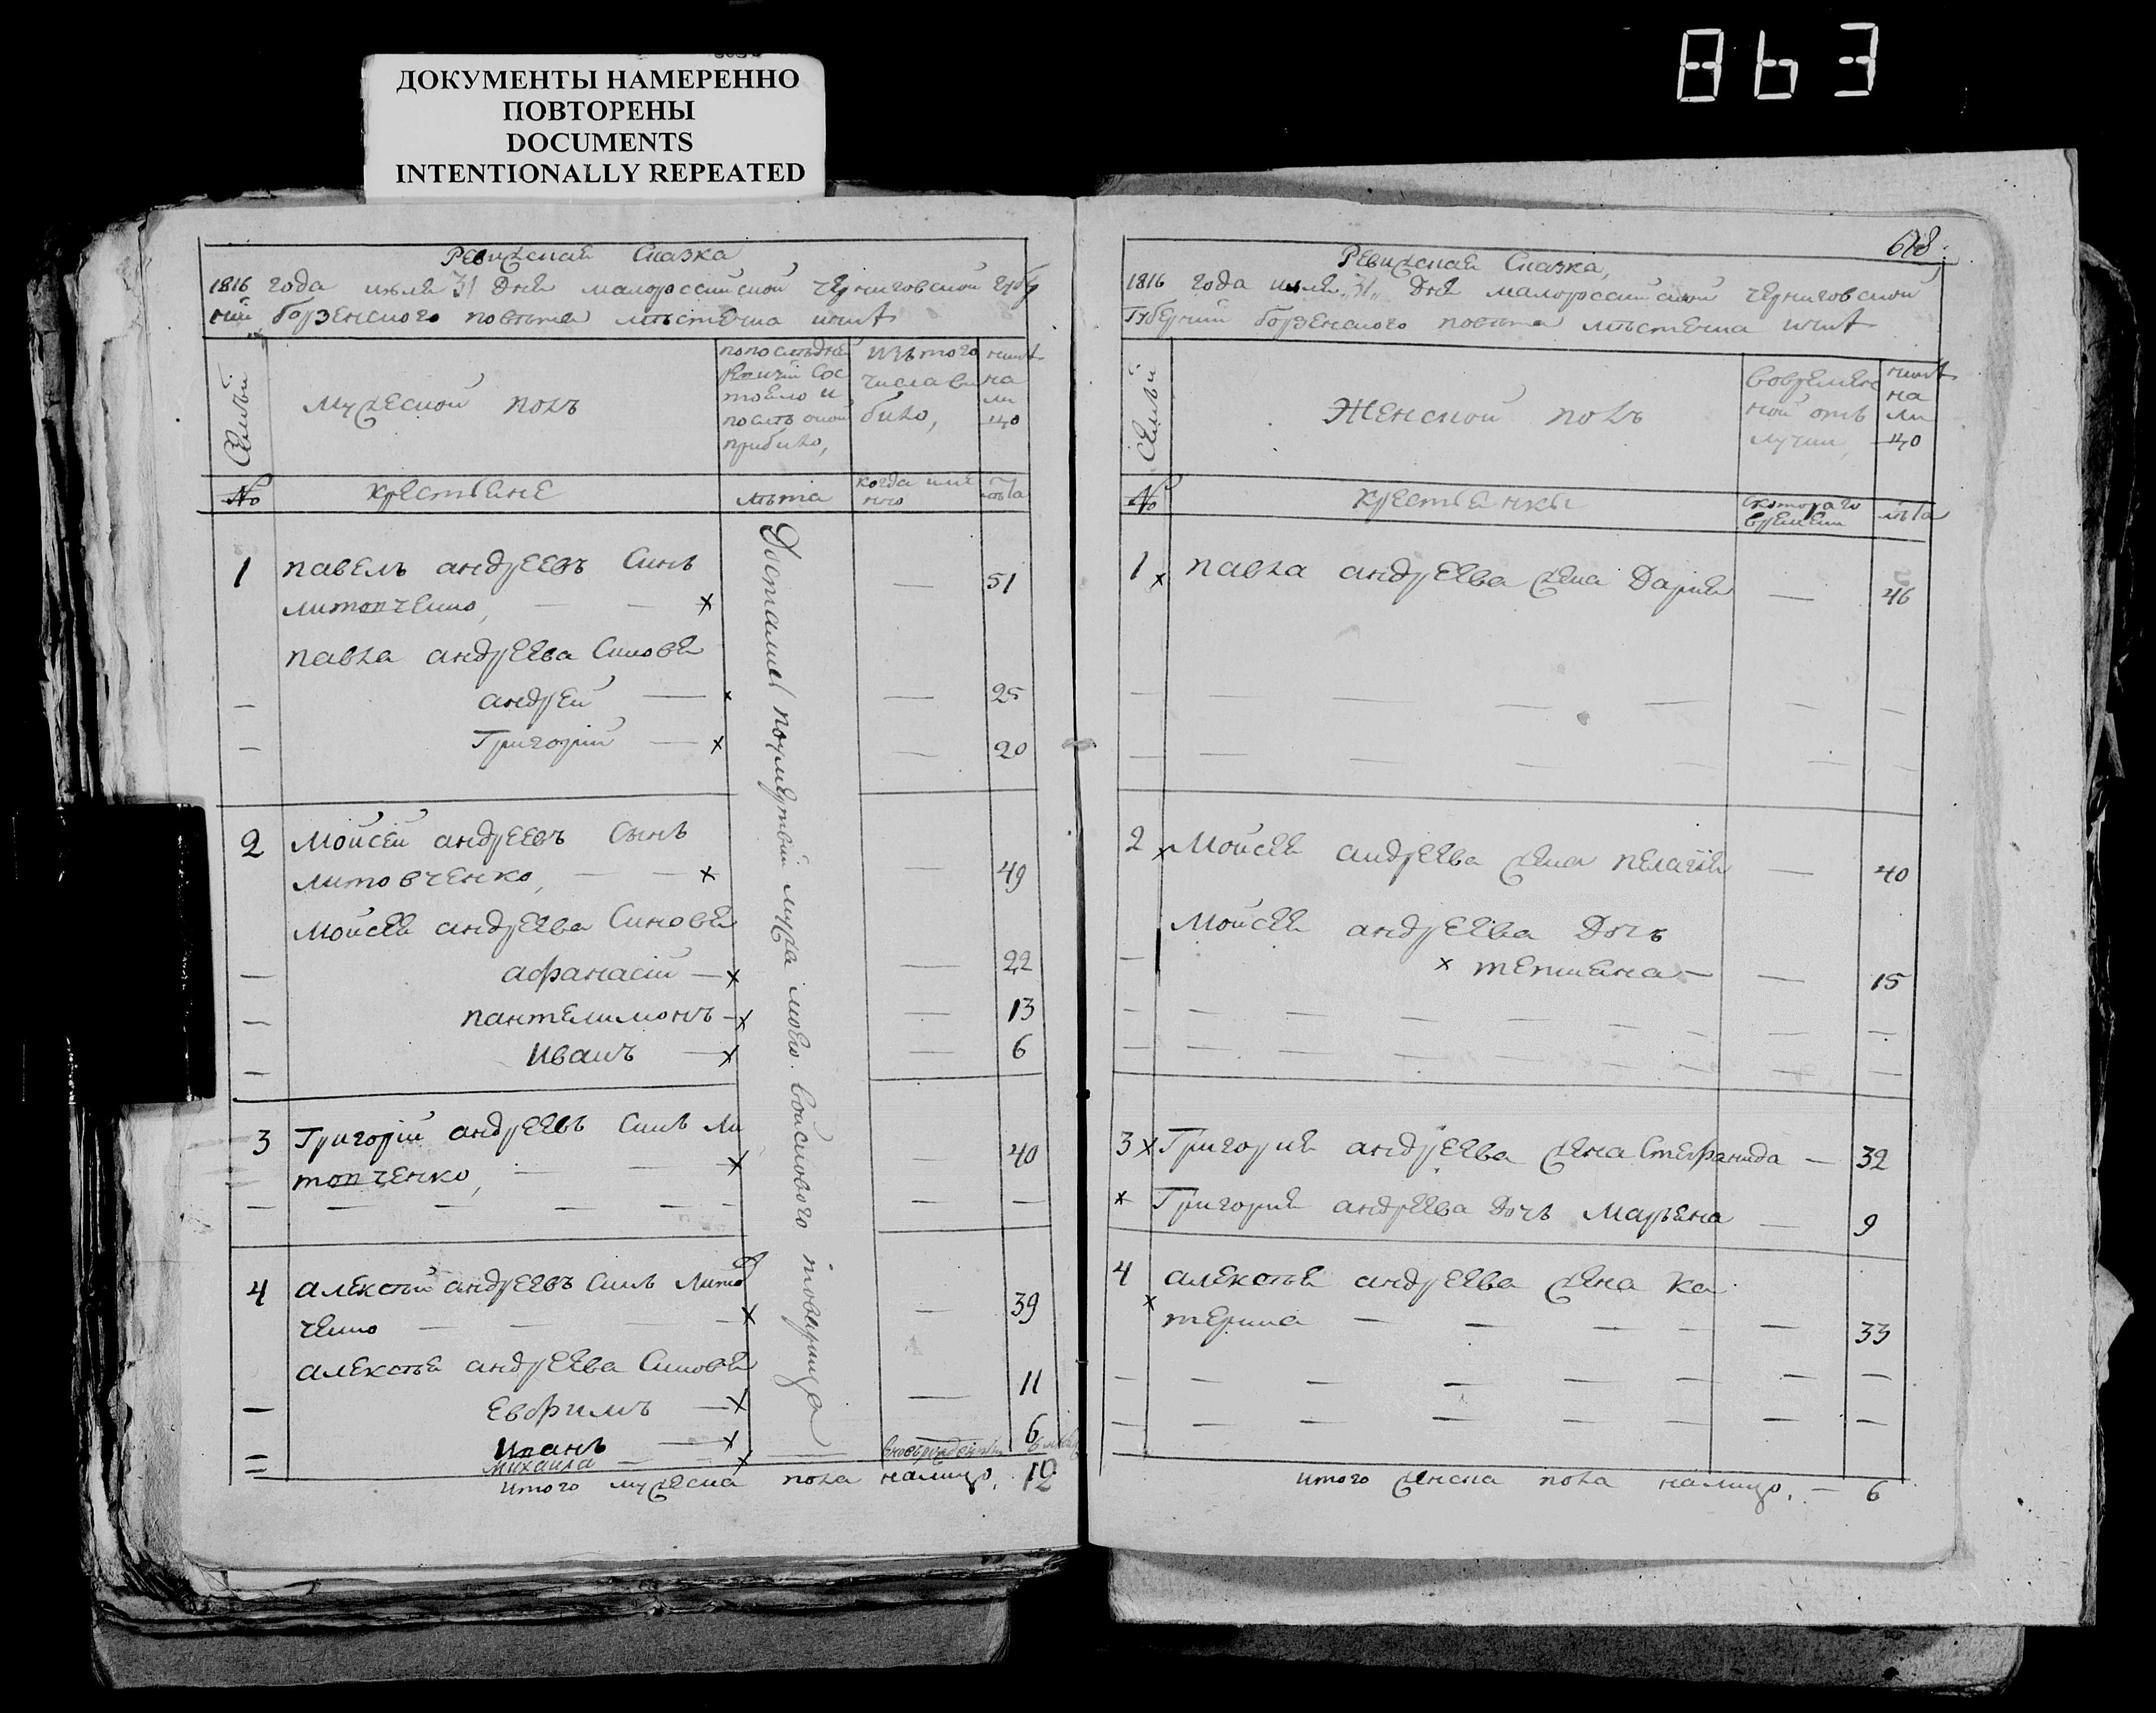 863
ДОКУМЕНТЫ НАМЕРЕННО
ПОВТОРЕНЫ
DOCUMENTS
INTENTIONALLY REPEATED
Ревизская Сказка
1816 года июля 31 дня малороссийской черниговской губер
ний борзенского повета местечка ични
Семьи
Мужеской полъ
по последней ревизии состояло и после оной прибило,
изъ того числа вибило,
ныне на лицо
№
крестьяне
лета
когда именно
лета
1 павелъ андреевъ Синъ
литовченко, — — х — 51
павла андреева Синовя
— андрей — х — 25
— Григорий — х — 20
2 Мойсей андреевъ сынъ
литовченко, — — х — 49
Мойсея андреева Синовя
— афанасий — х — 22
— пантелимонъ — х — 13
— Иванъ — х — 6
3 Григорий андреевъ Синъ Ли
товченко, — — х — 40
4 алексей андреевъ Синъ Литов
ченко — — х — 39
алексея андреева Синовя
— Евфимъ — х — 11
— Иванъ — х — 6
— Михаила — х
Достались по смертви мужа моего войскового товарища
итого мужеска пола налицо. 12
618.
Ревизская Сказка,
1816 года июля „31„ дня малороссийской черниговской
Губерний борзенского повета местечка ични
Семьи
Женской полъ
во временной отлучки,
ныне на лицо
№
крестьянки
скоторого времени
лета
1 х павла андреева жена Дария — 46
2 х Мойсея андреева жена пелагия — 40
Мойсея андреева Дочъ
— х тетияна — — 15
3 х Григория андреева жена Стефанида — 32
х Григория андреева дочъ Марьяна — 9
4 х алексея андреева жена Ка
терина — — — — — 33
итого женска пола налицо. — 6